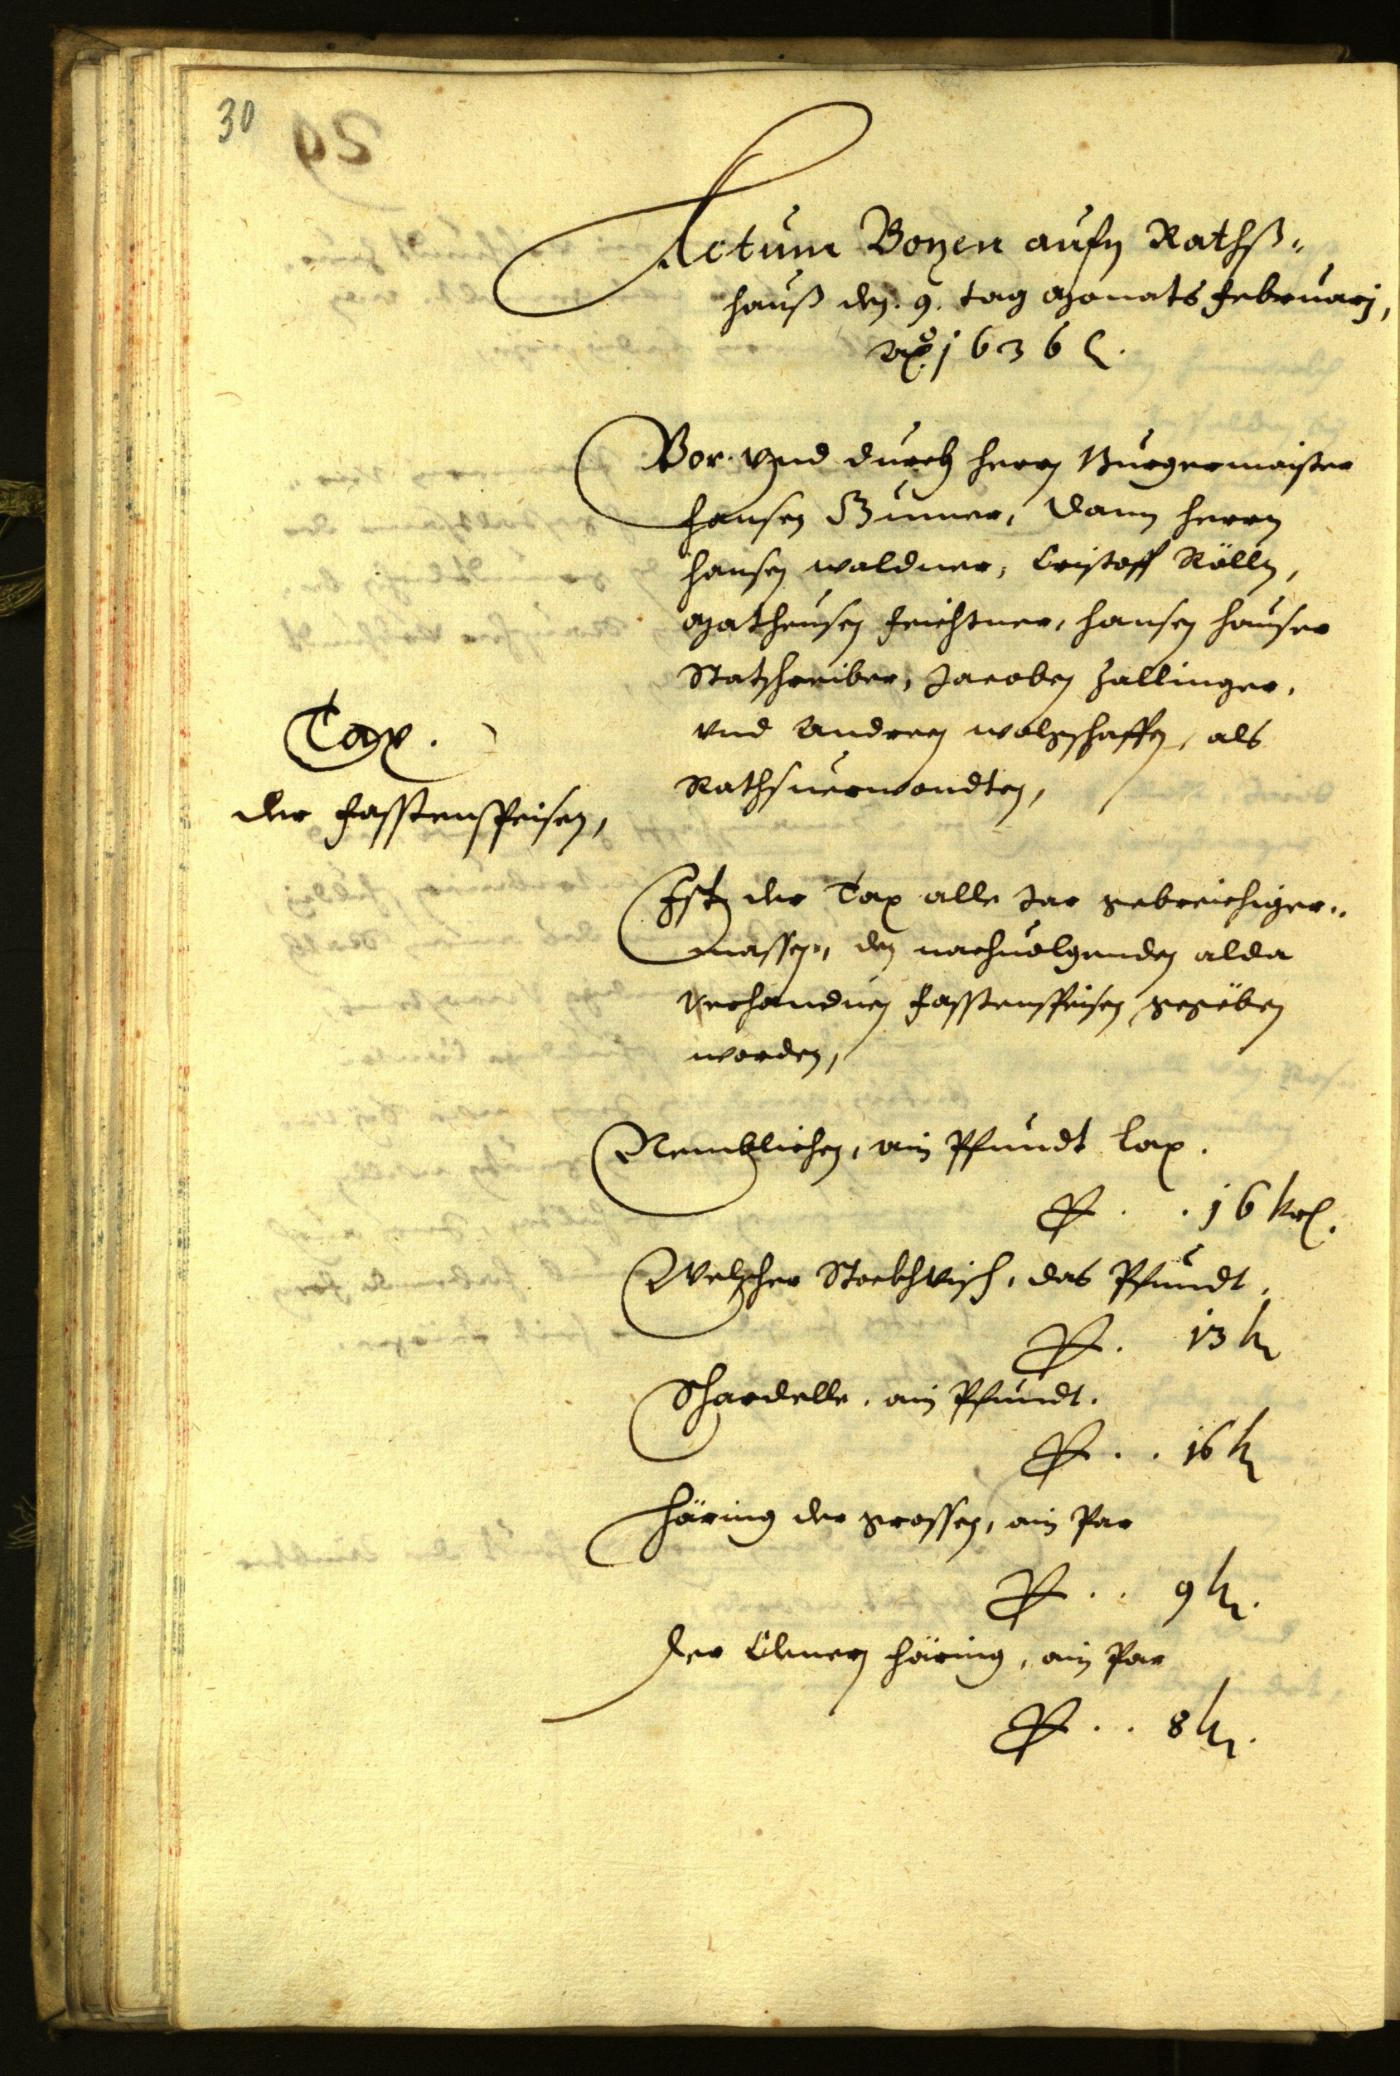 30
Actum Bozen aufn Rathß„
hauß den. 9. tag Monats Februarij,
Ao. 1636 ꝛ.
Vor. Vnd durch Herrn Burgermaister
Hansen Gumer, dann Herrn
Hansen Waldner, Cristoff Rölln,
Matheusen Feichtner, Hansen Hauser
Statschreiber, Jacoben Zallinger,
vnd Andreen Walgschaffn, als
Rathsuerwandten,
Tax.
der Fasstenspeisen,
Ist der Tax alle Jar gebreichiger„
massen, den nachuolgenden alda
verhandnen Fasstenspeisen gegöben
worden,
Nemblichen, ain Pfundt Lax.
P. . 16 kr.
Welscher Stockhvisch, das Pfundt.
P. 13 kr
Shardelle, ain Pfundt.
P. . 16 kr
Häring der grossen, ain Par
P. . 9 kr.
der Clenern Häring, ain Par
P. . 8 kr.